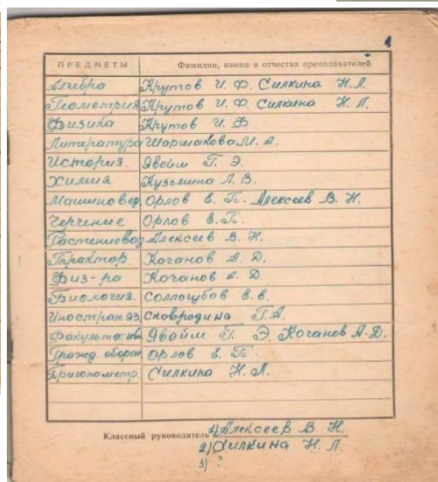 1
ПРЕДМЕТЫ Фамилии, имена и отчества преподавателей
Алгебра Крутов И. Ф. Силкина Н. Л.
Геометрия Крутов И. Ф. Силкина Н. Л.
Физика Крутов И. Ф.
Литература Шармакова М. А.
История. Явойм Г. Э.
Химия Кузьмина Л. В.
Машиновед. Орлов Е. П. Алексеев В. Н.
Черчение Орлов Е. П.
Растениевод Алексеев В. Н.
Трактор Коганов А. Д.
Физ-ра Коганов А. Д.
Биология. Е. В.
Иностран яз Сковородина Г. А.
Факультатив Явойм Г. Э. Коганов А. Д.
Гражд. оборон Орлов Е. П.
Тригонометр. Силкина Н. Л.
Классный руководитель 1) Алексеев В. Н.
2) Силкина Н. Л.
3) ?